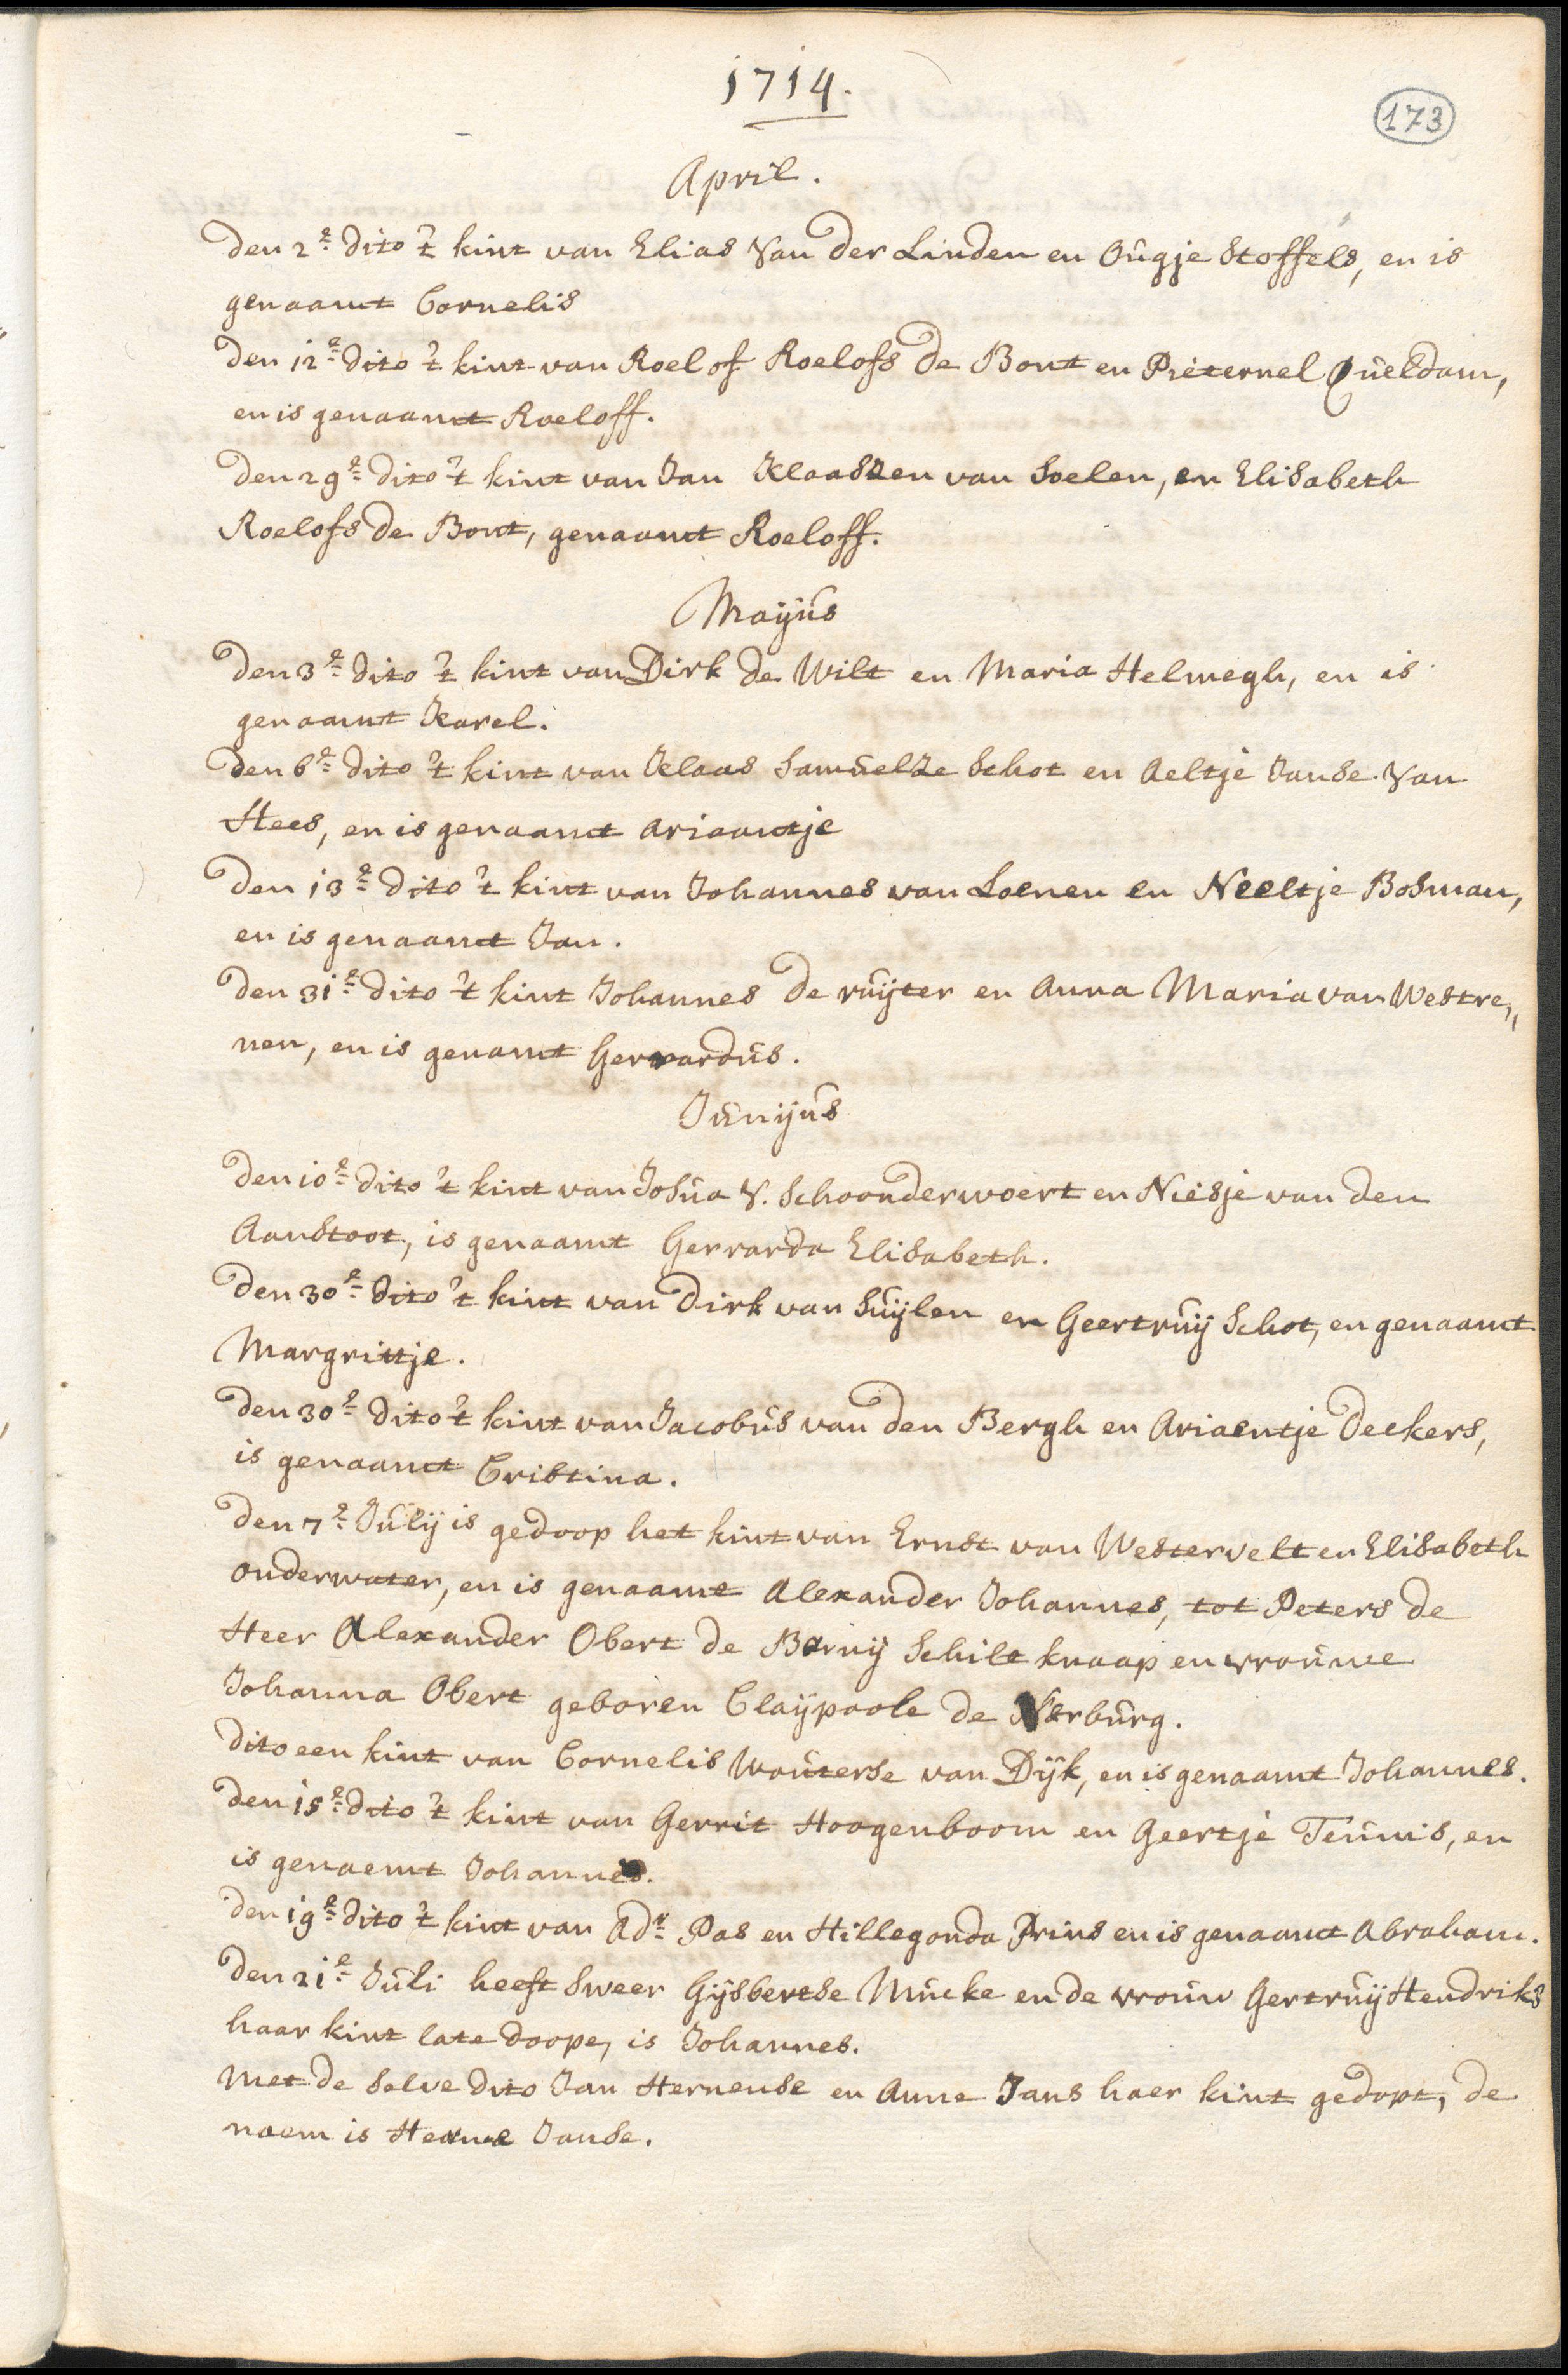 1714.
173
April.
Den 2e dito 't kint van Elias Van Der Linden en Ougje Stoffels, en is
genaamt Cornelis
Den 12e dito 't kint van Roelof Roelofs De Bont en Pieternel Queldam,
en is genaamt Roeloff.
Den 29e dito 't kint van Jan Klaaszen van Soelen, en Elisabeth
Roelofs De Bont, genaamt Roeloff.
Mayus
Den 3e dito 't kint van Dirk De Wilt en Maria Helmegh, en is
genaamt Karel.
Den 6e dito 't kint van Klaas Samuelze Schot en Aeltje Janse Van
Hees, en is genaamt Ariaantje
Den 13e dito 't kint van Johannes van Loenen en Neeltje Bosman,
en is genaamt Jan.
Den 31e dito 't kint Johannes De ruijter en Anna Maria van Westre„
nen, en is genamt Gerrardus.
Junijus
Den 10e dito 't kint van Josua V. Schoonderwoert en Niesje van den
Aanstoot, is genaamt Gerrarda Elisabeth.
Den 30e dito 't kint van Dirk van Suijlen en Geertruij Schot, en genaamt
Margrittje.
Den 30e dito 't kint van Jacobus van den Bergh en Ariaentje Deckers,
is genaamt Cristina.
Den 7e Julij is gedoop het kint van Ernst van Westervelt en Elisabeth
onderwater, en is genaamt Alexander Johannes, tot Peters de
Heer Alexander Obert de Barnij Schilt knaap en vrouwe
Johanna Obert geboren Claijpoole de Norburg.
Dito een kint van Cornelis Wouterse van Dijk, en is genaamt Johannes.
Den 15e dito 't kint van Gerrit Hoogenboom en Geertje Teunis, en
is genaemt Johannes.
Den 19e dito 't kint van Adr Pas en Hillegonda Prins en is genaamt Abraham.
Den 21e Juli heeft Sweer Gijsbertse Mucke en de vrouw Gertruij Hendriks
haar kint late doope, is Johannes.
Met de selve dito Jan Hermense en Anne Jans haer kint gedopt, de
naem is Herme Janse.